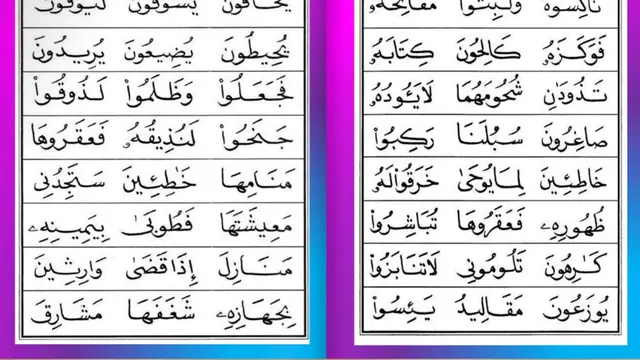 فَوَكَزَهُۥ كَالِحُونَ كِتَابَهُۥ
تَذُودَٰنِ شُحُومَهُمَا لَايَئُودُهُۥ
صَاغِرُونَ سُبُلَنَا رَكِبُوا۟
خَاطِئِينَ لِمَايُوحَىٰ خَرَقُوالَهُۥ
ظُهُورِهِۦ فَعَقَرُوهَا تُبَاشِرُوا۟
كَٰرِهُونَ تَلُومُونِي لَاتَنَابَزُوا۟
يُوزَعُونَ مَقَالِيدُ يَئِسُوا۟
يُحِيطُونَ يُضِيعُونَ يُرِيدُونَ
فَجَعَلُوا۟ وَظَلَمُوا۟ لَذُوقُوا۟
جَنَحُوا۟ لَنُذِيقُهُۥ فَعَقَرُوهَا
مَنَامِهَا خَٰطِئِينَ سَتَجِدُنِي
مَعِيشَتَهَا فَطُوبَىٰ بِيَمِينِهِۦ
مَنَازِلَ إِذَاقَضَىٰ وَارِثِينَ
بِجَهَازِهِۦ شَغَفَهَا مَشَارِقَ